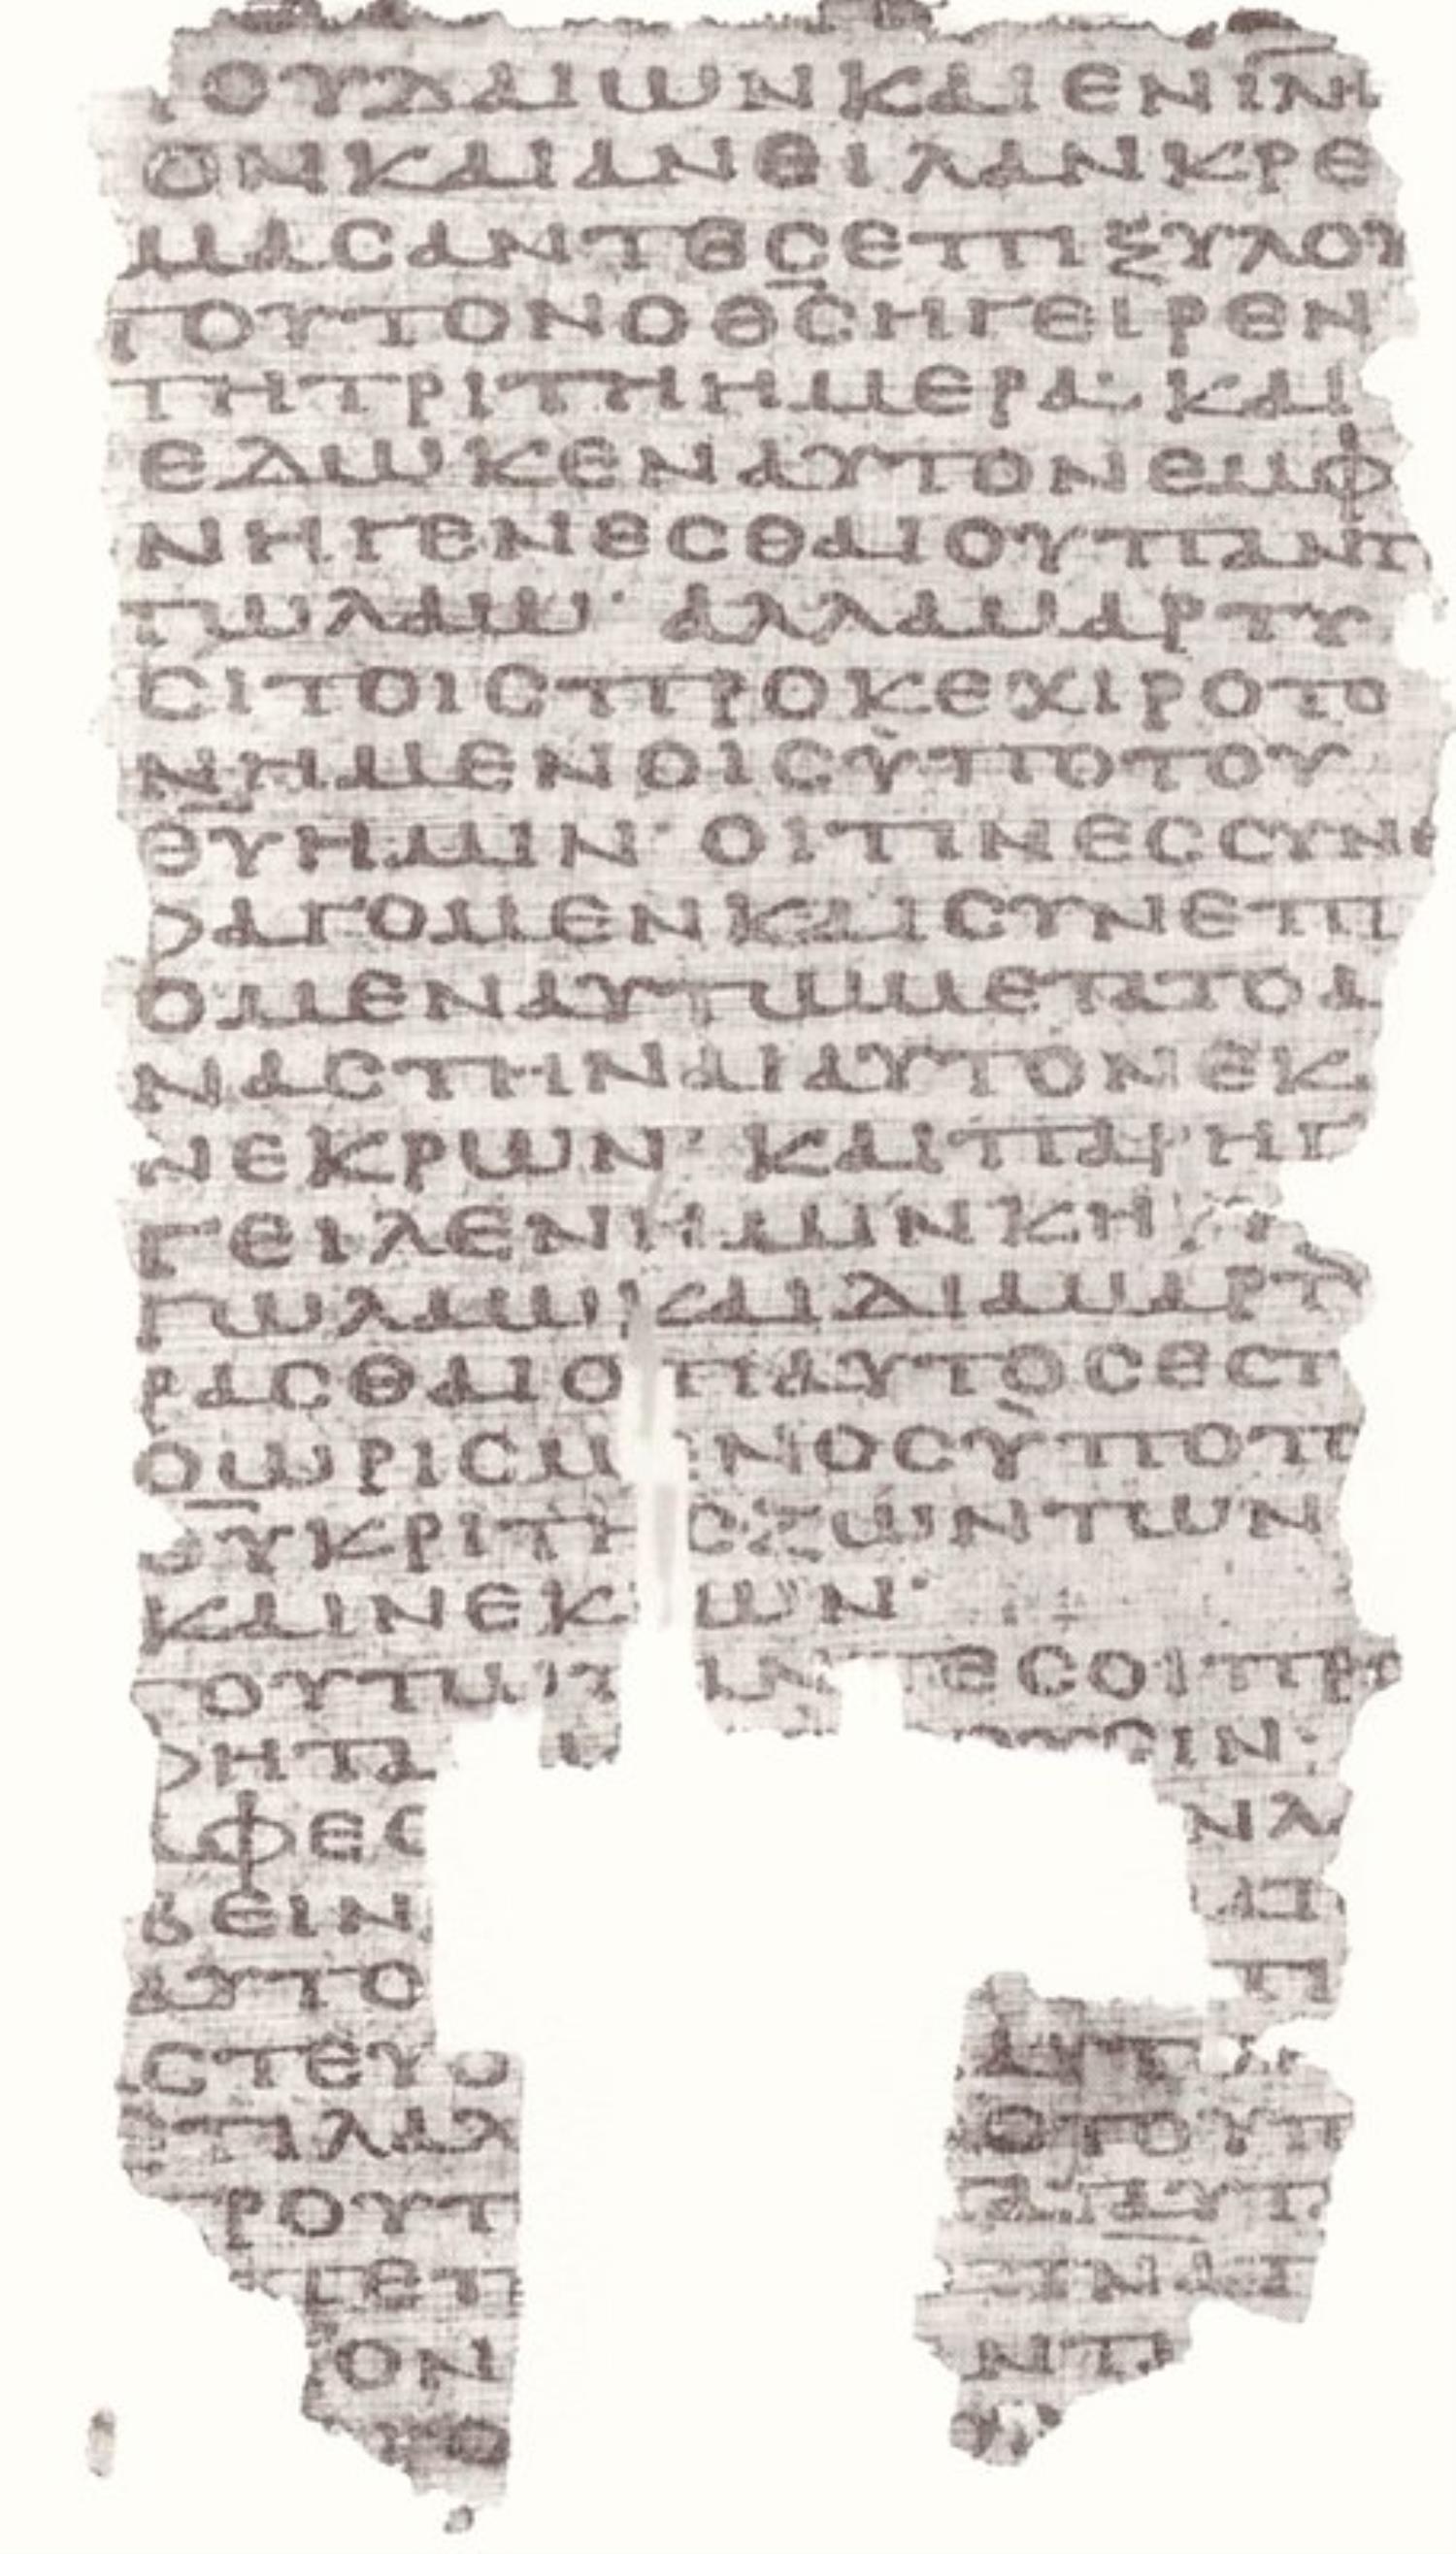 ΙΟΥΔΑΙΩΝΚΑΙΕΝΙΛΗΜ
ΟΝΚΑΙΑΝΘΙΛΑΝΚΡΕ
ΜΑСΑΝΤΕСΕΠΙΞΥΛΟΥ
ΤΟΥΤΟΝΟΘ̅С̅ΗΓΕΙΡΕΝ
ΤΗΤΡΙΤΗΗΜΕΡΑ· ΚΑΙ
ΕΔΩΚΕΝΑΥΤΟΝΕΜΦ
ΝΗΓΕΝΕСΘΑΙΟΥΠΑΝΤ
ΤΩΛΑΩ· ΑΛΛΑΜΑΡΤΥ
СΙΤΟΙСΠΡΟΚΕΧΙΡΟΤΟ
ΝΗΜΕΝΟΙСΥΠΟΤΟΥ
Θ̅Υ̅ΗΜΙΝ· ΟΙΤΙΝΕССΥΝΕ
ΦΑΓΟΜΕΝΚΑΙСΥΝΕΠΙ
ΟΜΕΝΑΥΤΩΜΕΤΑΤΟΑ
ΝΑСΤΗΝΑΙΑΥΤΟΝΕΚ
ΝΕΚΡΩΝ· ΚΑΙΠΑΡΗΓ
ΓΕΙΛΕΝΗΜΙΝΚΗΥ
ΤΩΛΑΩΚΑΙΔΙΑΜΑΡΤΥ
ΡΑСΘΑΙΟΤΙΑΥΤΟСΕСΤΙ
ΟΩΡΙСΜΕΝΟСΥΠΟΤΟ
Θ̅Υ̅ΚΡΙΤΗСΖΩΝΤΩΝ
ΚΑΙΝΕΚ ΩΝ·
ΤΟΥΤΩ ΕСΟΙΠΡΟ
ΦΗΤΑ ΟΥСΙΝ·
ΑΦΕС ΝΑ
ΒΕΙΝ ΑΠ
ΑΥΤΟ Π
СΤΕΥΟ ΑΥΤ
ΕΤΙΛΑΛ ΟΤΟΥΠ
ΤΡΟΥΤ ΤΑΥΤ
ΕΠΕΠ ΠΝΑΤ
ΟΝ ΝΤ
Ο